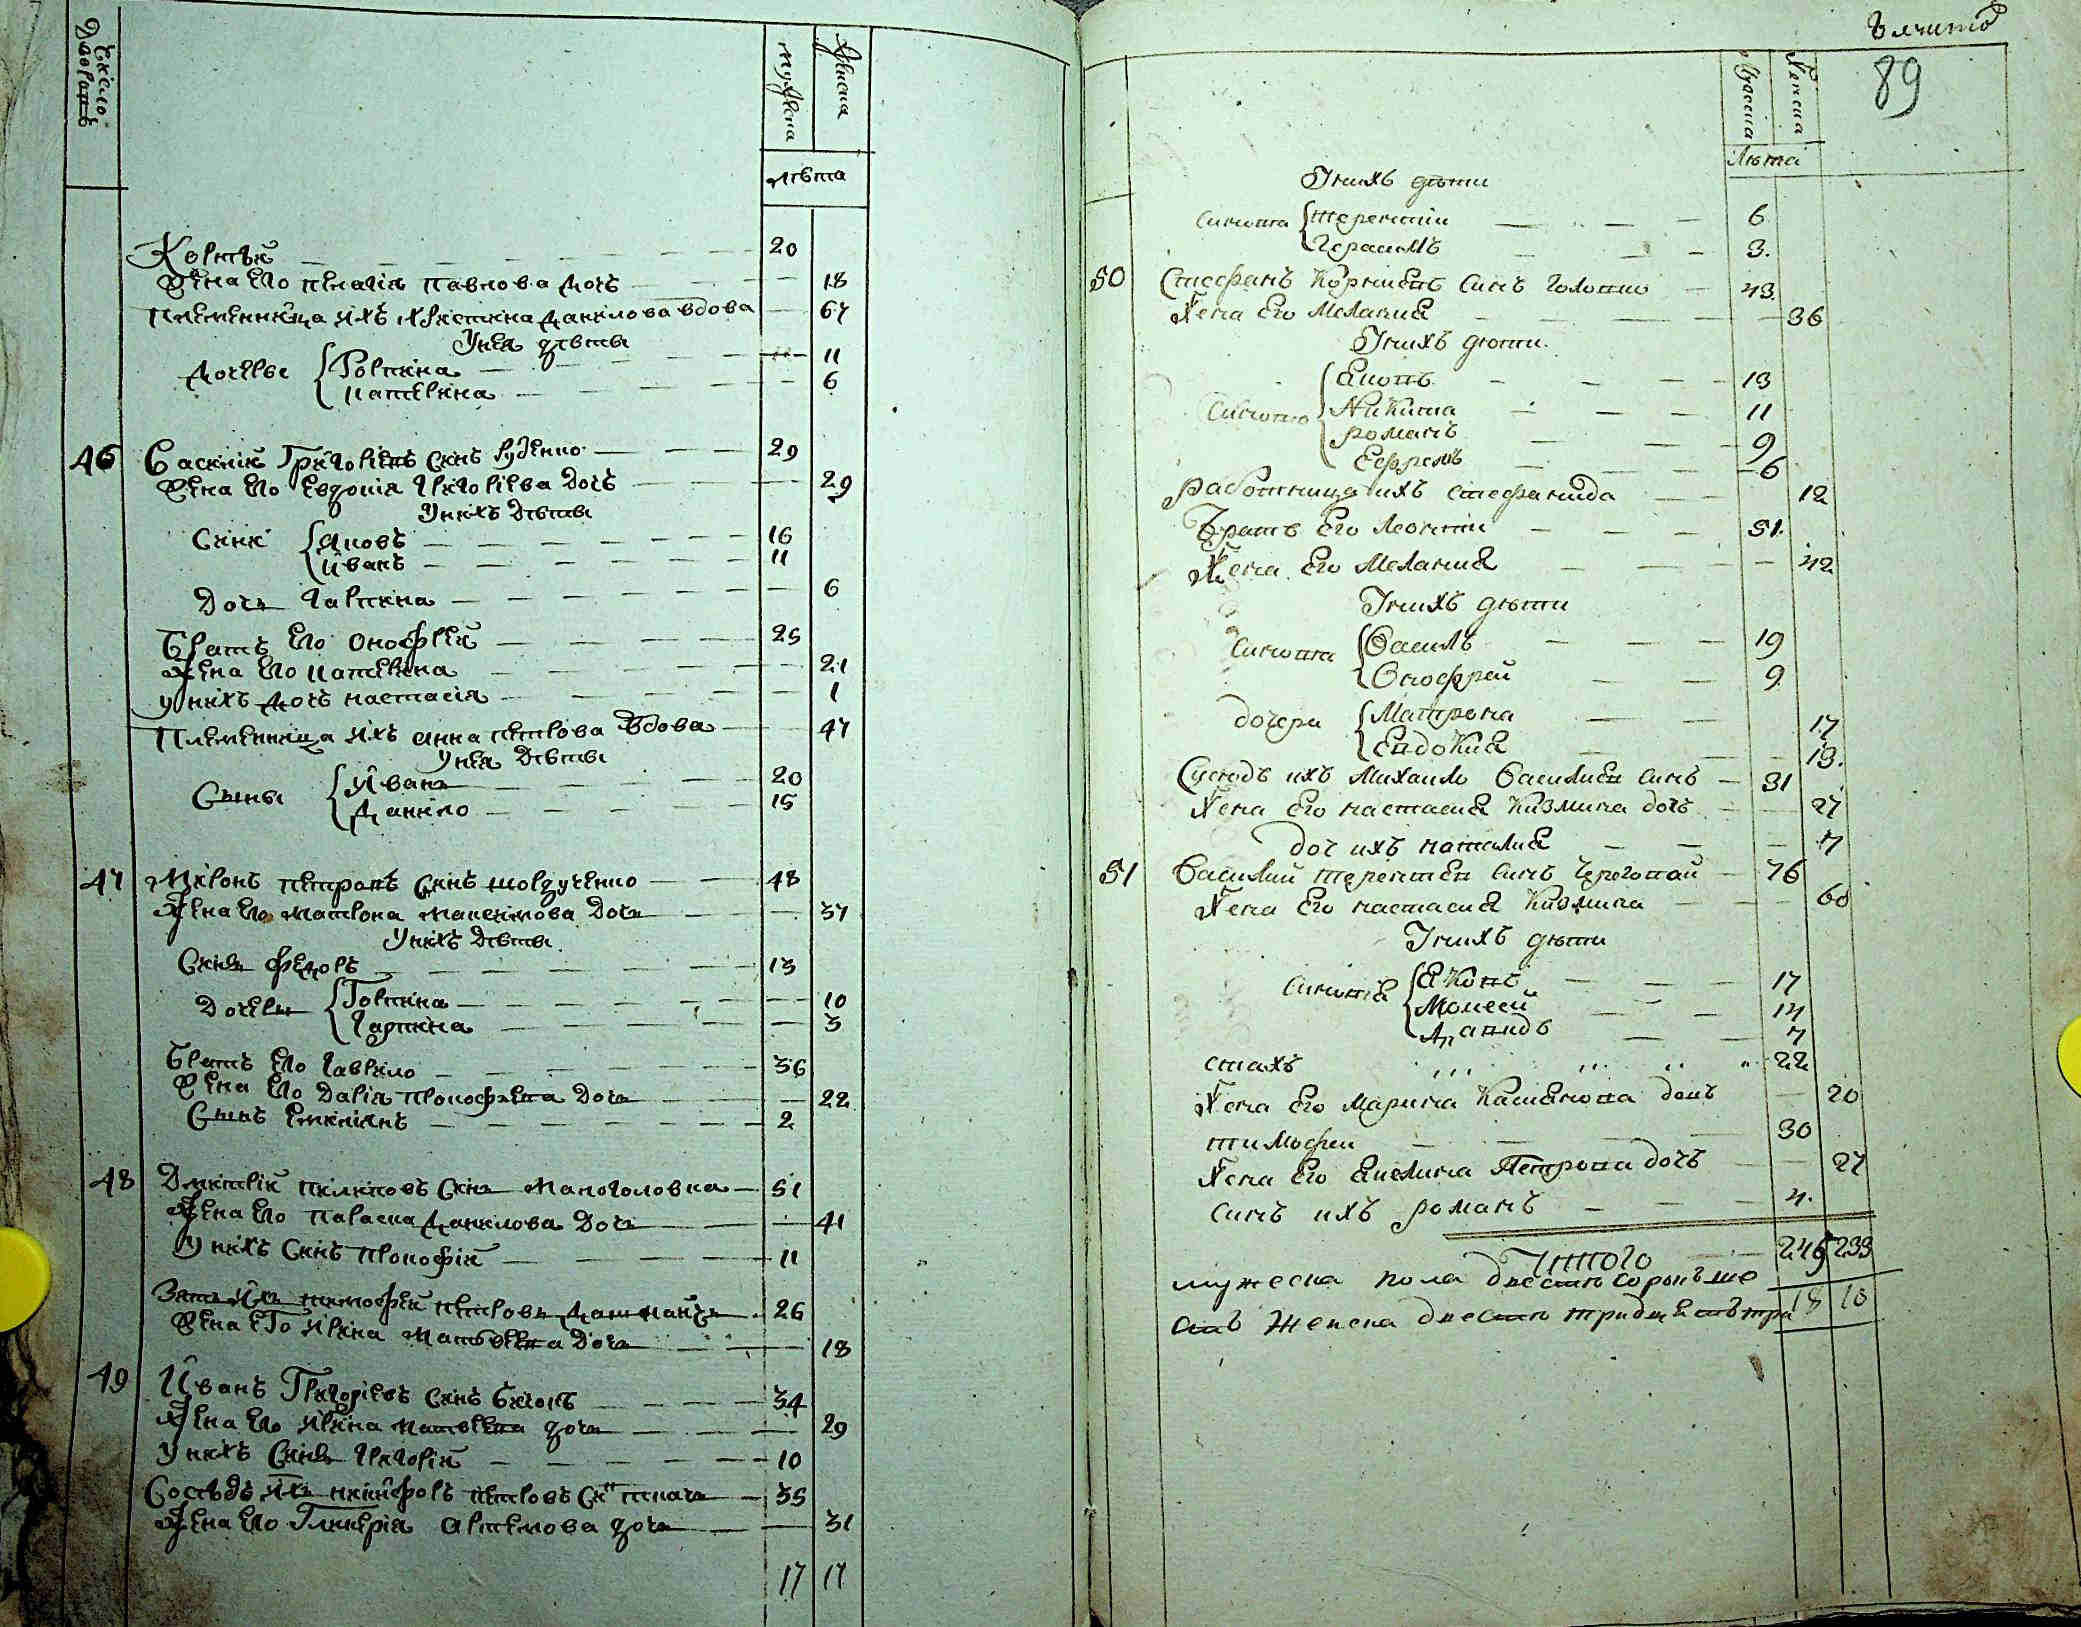 Число дворовъ
мужеска
женска
лѣта
Корнѣй 20
Жена его Пелагія Павлова дочь 18
Племенница ихъ Христина Данилова вдова 67
У нея дѣти
дочери Горпина 11
Катерина 6
46 Василій Григоріевъ синъ Руденко 29
Жена его Евдокія Григоріева дочь 29
У нихъ дѣти
Сини Яковъ 16
Иванъ 11
Дочь Гарпина 6
Братъ его Онофрей 25
Жена его Катерина 21
У нихъ дочь Настасія 1
Племенница ихъ Анна Петрова вдова 47
У нея дѣти
Сыны Иванъ 20
Данило 15
47 Миронъ Петровъ синъ 48
Жена его Матрона Максимова дочь 37
У нихъ дѣти
Синъ Федоръ 13
Дочери Горпина 10
Гарпина 3
Братъ его Гаврило 36
Жена его Дарія Прокофиева дочь 22
Сынъ Емиліянъ 2
48 Дмитрій Пилиповъ синъ Маноголовка 51
Жена его Параска Данилова дочь 41
У нихъ синъ Прокофій 11
Зять ихъ Тимофей Петровъ 26
Жена его Ирина Матвѣева дочь 18
49 Иванъ Григоріевъ синъ Бигонъ 34
Жена его Ирина Матвѣева дочь 29
У нихъ синъ Григорій 10
Сосѣдъ ихъ Никифоръ Петровъ синъ Ткачъ 35
Жена его Гликерія Артемова дочь 31
17 17
89
мужеска
женска
Лѣта
У нихъ дѣти
Синовя Терентій 6
Герасимъ 3
50 Стефанъ Корнѣевъ синъ Голотио 43
Жена его Меланія 36
У нихъ дѣти
Синовя Яковъ 13
Никита 11
Романъ 9
Ефремъ 6
Работница ихъ Стефанида 12
Братъ его Леонтій 51
Жена его Меланія 42
У нихъ дѣти
Синовя Василь 19
Онофрей 9
дочери Матрона 17
Евдокія 13
Сусѣдъ ихъ Михайло Василіевъ синъ 31
Жена его Настасія Кизмина дочь 27
Доч ихъ Наталія 7
51 Василий Терентіевъ синъ Черегопай 76
Жена его Настасія Кизмина 60
У нихъ дѣти
Синовя Яковъ 17
Моисей 14
Давидъ 7
Стахъ 22
Жена его Марина Касянова дочь 20
Тимофей 30
Жена его Акелина Петрова дочь 27
Синъ ихъ Романъ 4
Итого 246 233
мужеска пола двести сорокъ ше
сть женска двести тридцять три 18 10